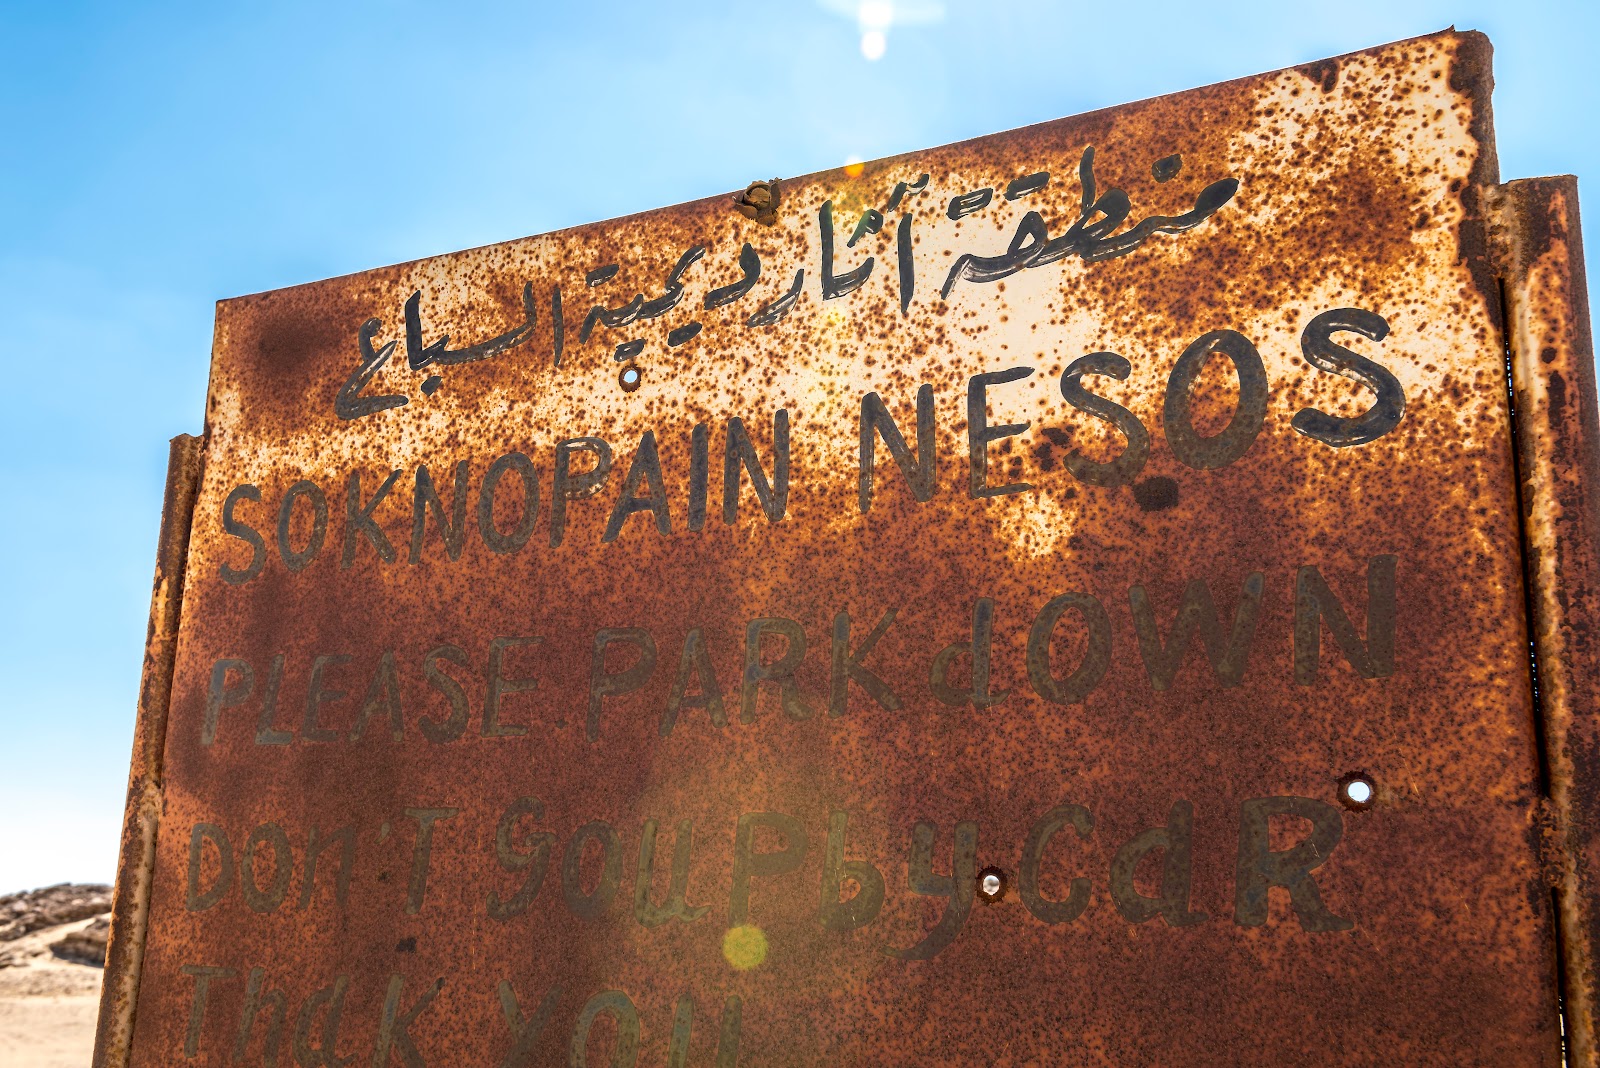 منطقة آثار ديمية السباع
SOKNOPAIN NESOS
PLEASE PARK dOWN
DOn'T GOUP by CdR
ThdK YOU